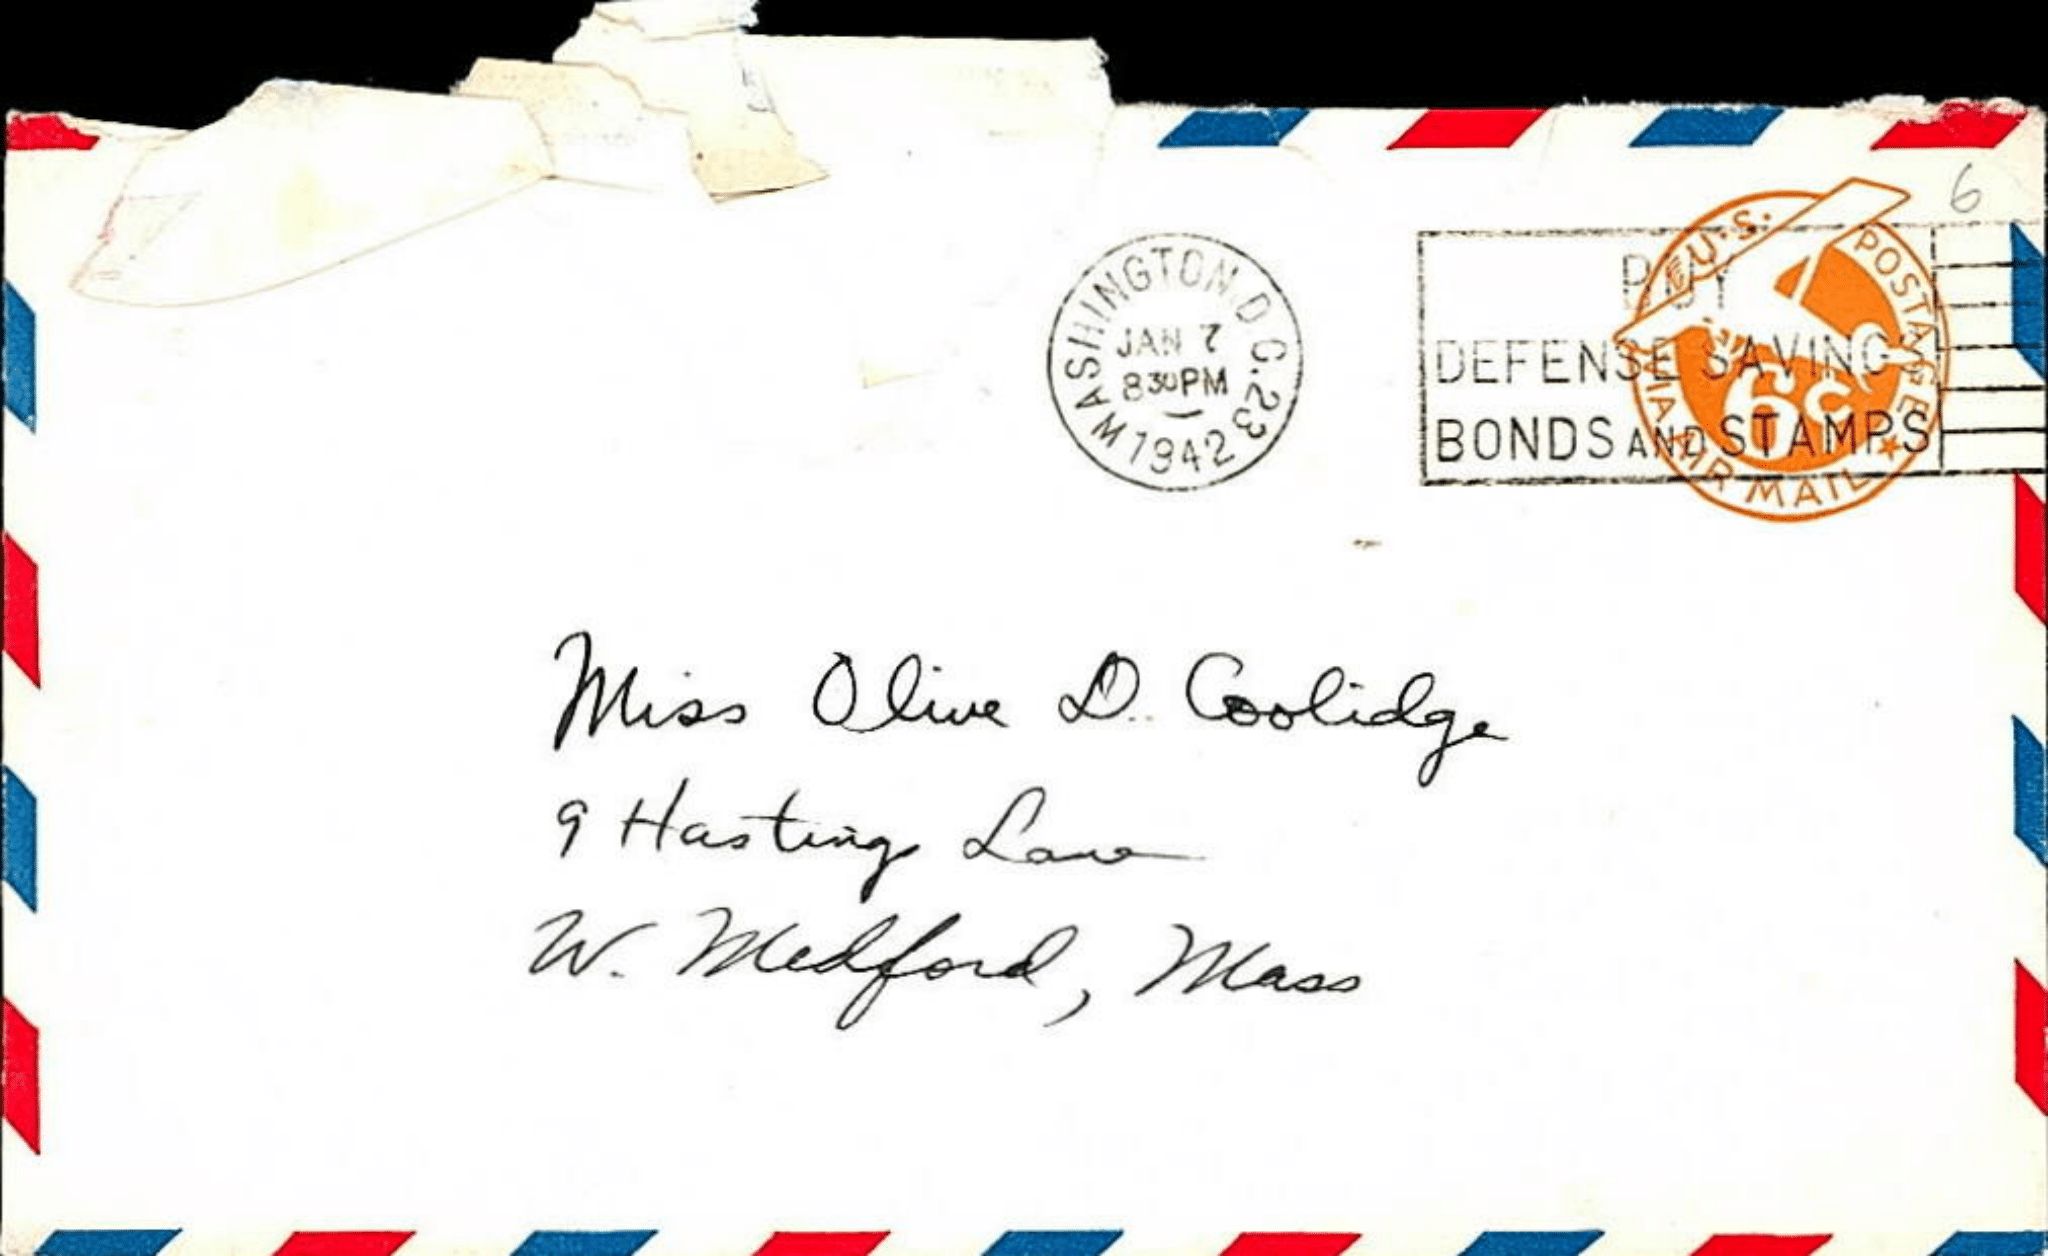 6
WASHINGTON, D.C. 23
JAN 7
8 30 PM
1942
BUY
DEFENSE SAVINGS
BONDS AND STAMPS
U.S. POSTAGE
6c
VIA AIR MAIL
Miss Olive D. Coolidge
9 Hastings Lane
W. Medford, Mass